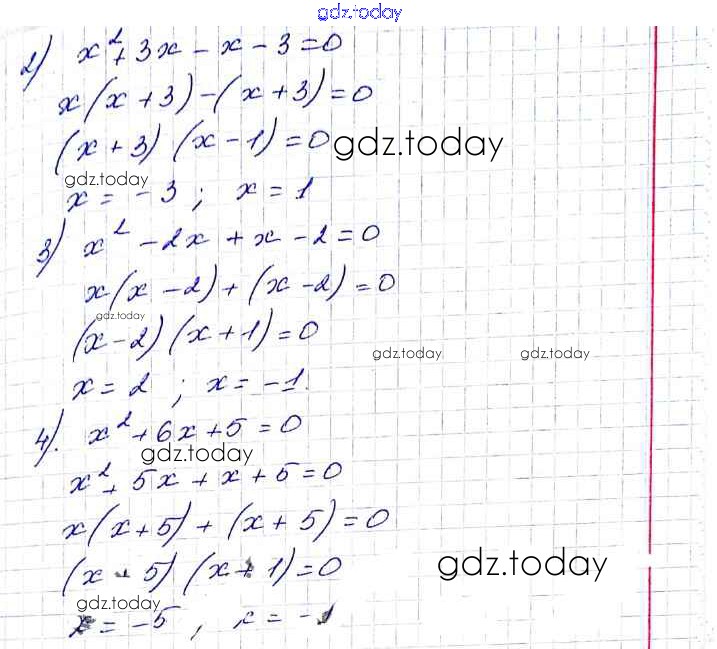 gdz.today
2) x² + 3x - x - 3 = 0
x(x + 3) - (x + 3) = 0
(x + 3) (x - 1) = 0 gdz.today
gdz.today
x = - 3 ; x = 1
3) x² - 2x + x - 2 = 0
x(x - 2) + (x - 2) = 0
gdz.today
(x - 2) (x + 1) = 0
gdz.today gdz.today
x = 2 ; x = - 1.
4). x² + 6x + 5 = 0
gdz.today
x² + 5x + x + 5 = 0
x(x + 5) + (x + 5) = 0
(x + 5) (x + 1) = 0 gdz.today
gdz.today
x = - 5 , x = - 1